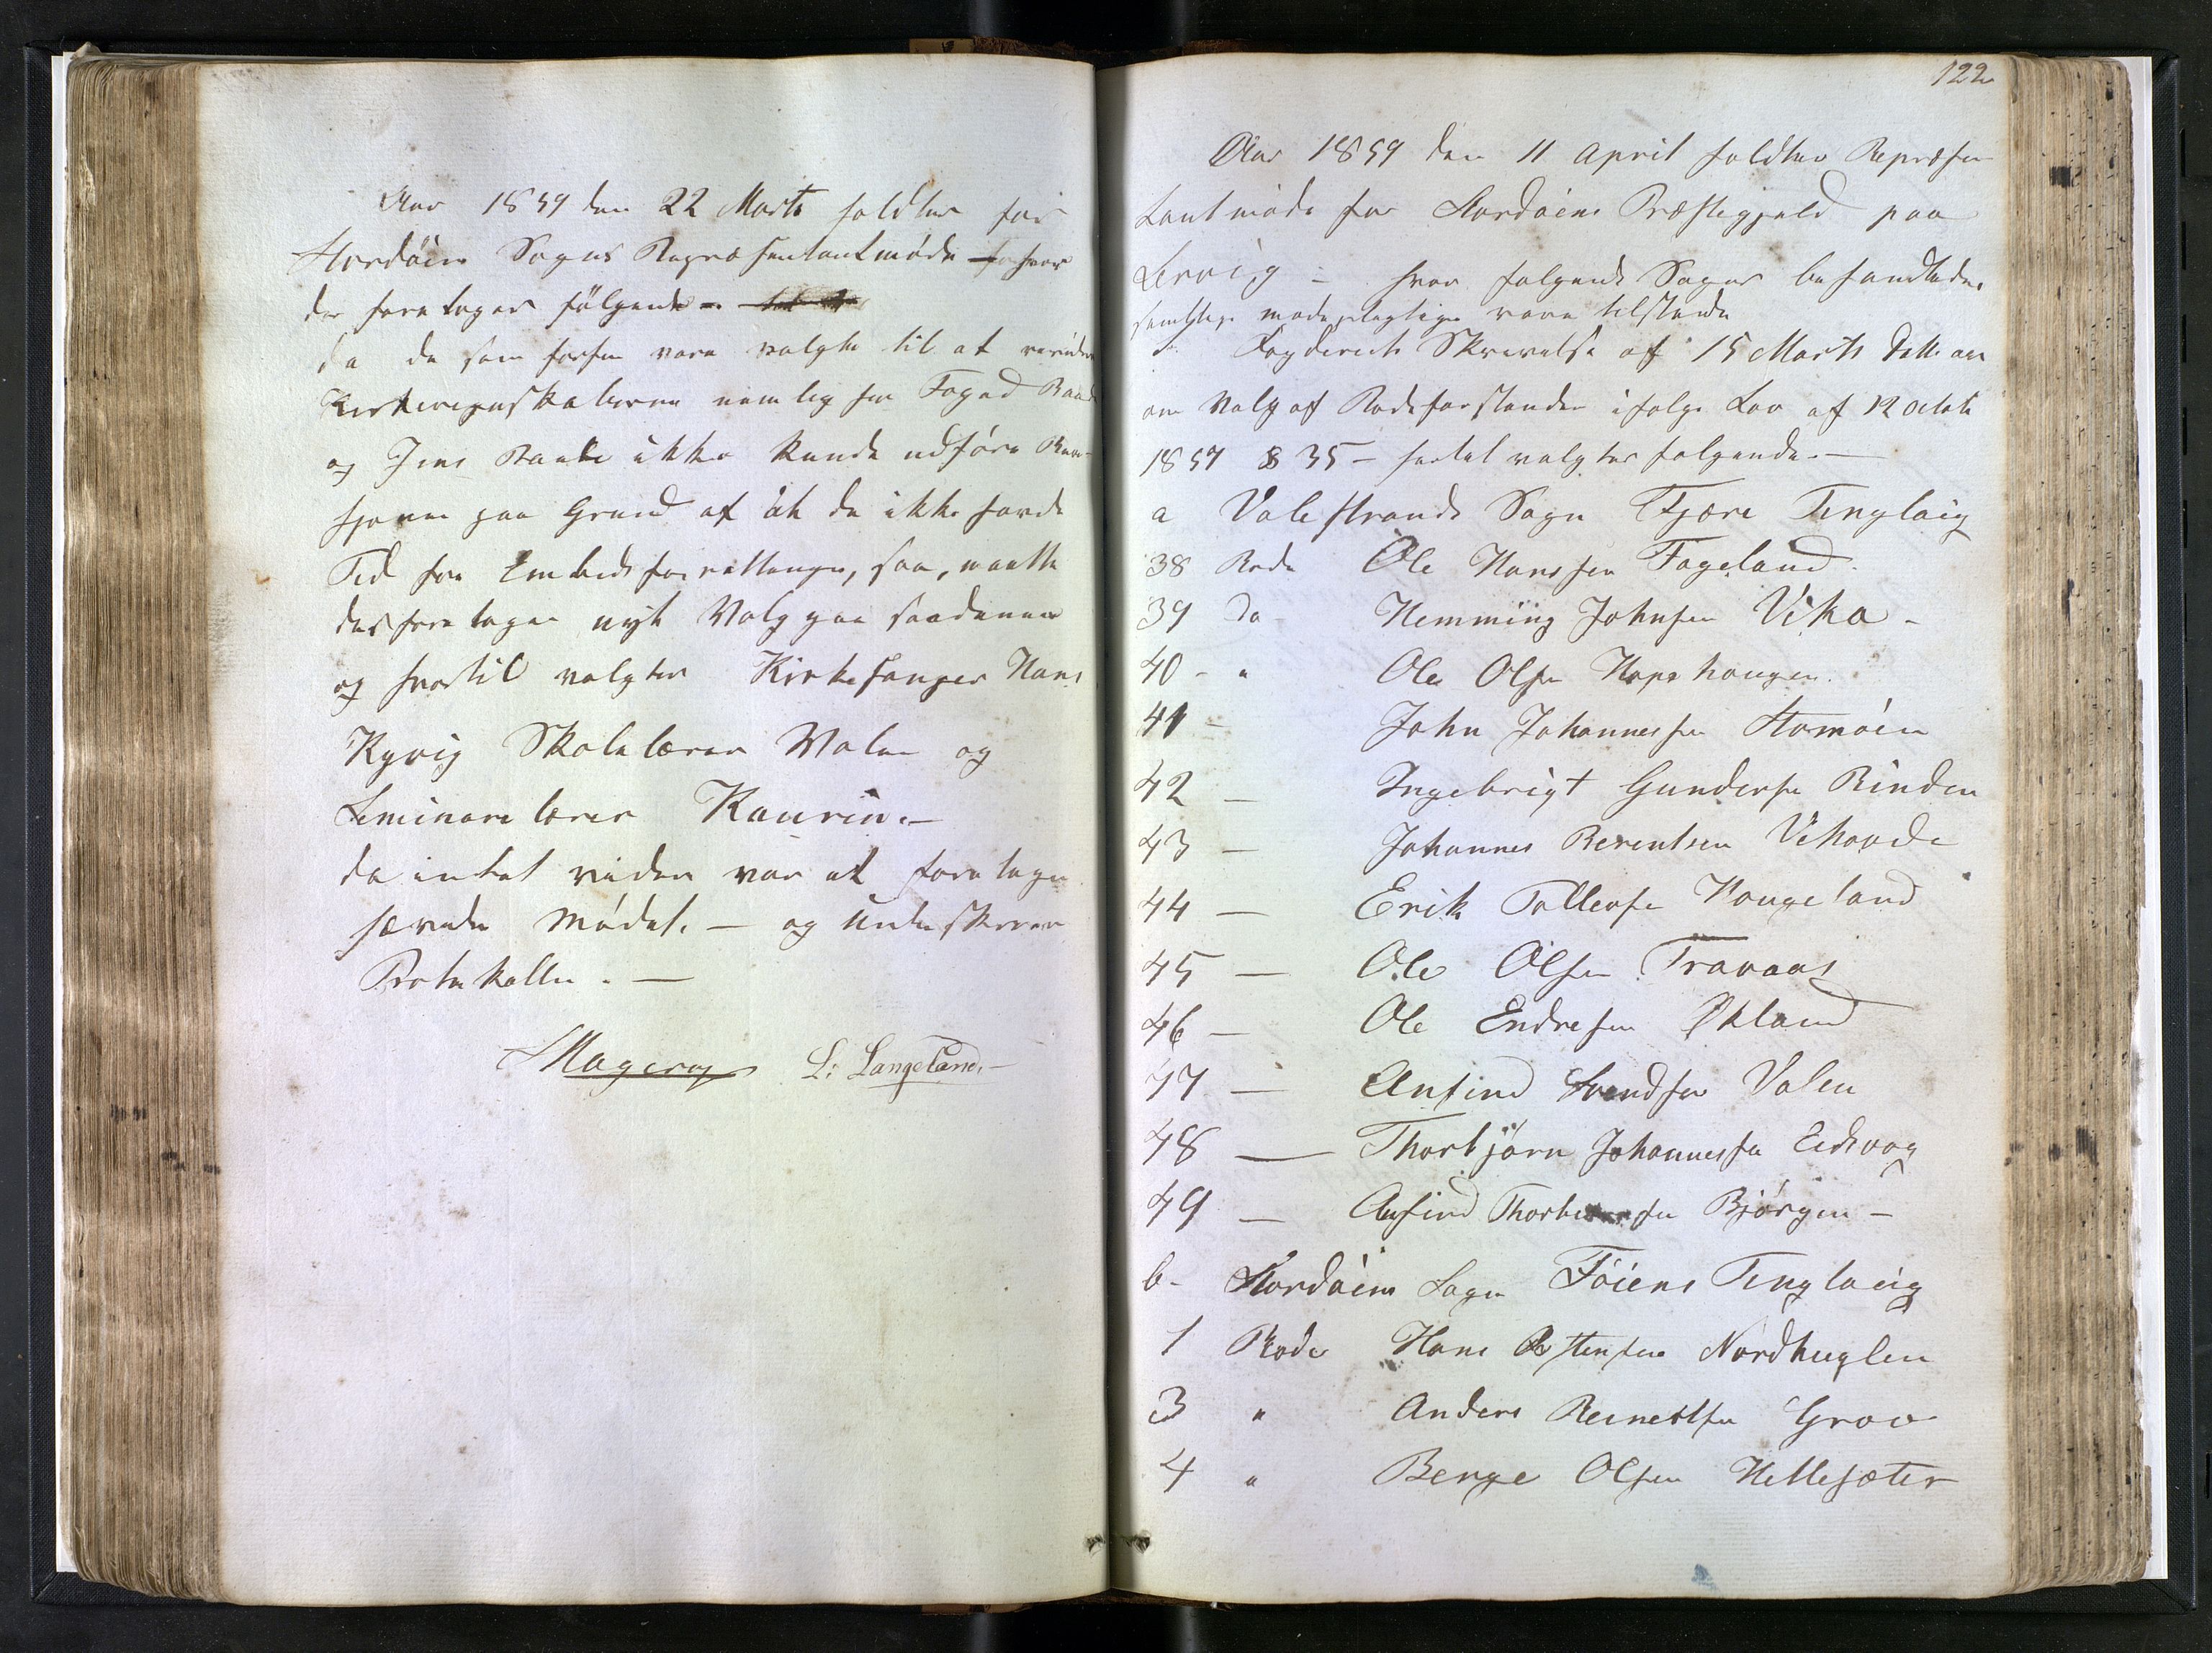 Aar 1859 den 22 Marts holdtes for
Stordöens Sogns Repræsentantmöde hvor
der foretoges fölgende
da de som forhen vare valgte til at revidere
Kirkeregnskaberne nemlig hr Foged
og Jens ikke kunde udföre
paa Grund af at de ikke havde
Tid for Embedsforretninger, saa, maatte
der foretages nyt Valg paa saadanne
og hvortil valgtes Kirkesanger Hans
Kyvig Skolelærer Valen og
Seminarelærer Kaurin. —
da intet videre var at foretage
hævedes Mödet. — og underskreven
Protokollen. —
Mageröy L: Langeland. —
122
Aar 1859 den 11 April holdtes Repræsen
tantmöde for Stordöens Præstegjeld paa
Lervig – hvor fölgende Sager behandledes
samtlige mödepligtige vare tilstede
Fogderiets Skrivelse af 15 Marts
om Valg af Rodeforstander ifölge Lov af 12 Octob
1857 § 35 – hertil valgtes fölgende. —
a Valestrands Sogn Fjære Tinglaug
38 Rode Ole Hanssen Fageland.
39 Do Hemming Johnsen Vika –
40 - " Ole Olsen Hopehaugen.
41 - John Johannessen Stomöen
42 — Ingebrigt Gundersen Rinden
43 — Johannes Berentsen Vihovde
44 — Erik Tollefsen Haugeland
45 — Ole Olsen Travaas
46 — Ole Endresen Økland
47 — Anfind Svendsen Valen
48 — Thorbjörn Johannessen Eidsvog
49 — Anfind Bjørgen –
b - Stordöens Sogn Föiens Tinglaug
1 Rode Hans Østensen Nordhuglen
3 " Anders Reinertsen Grov
4 " Berge Olsen Hellesæter